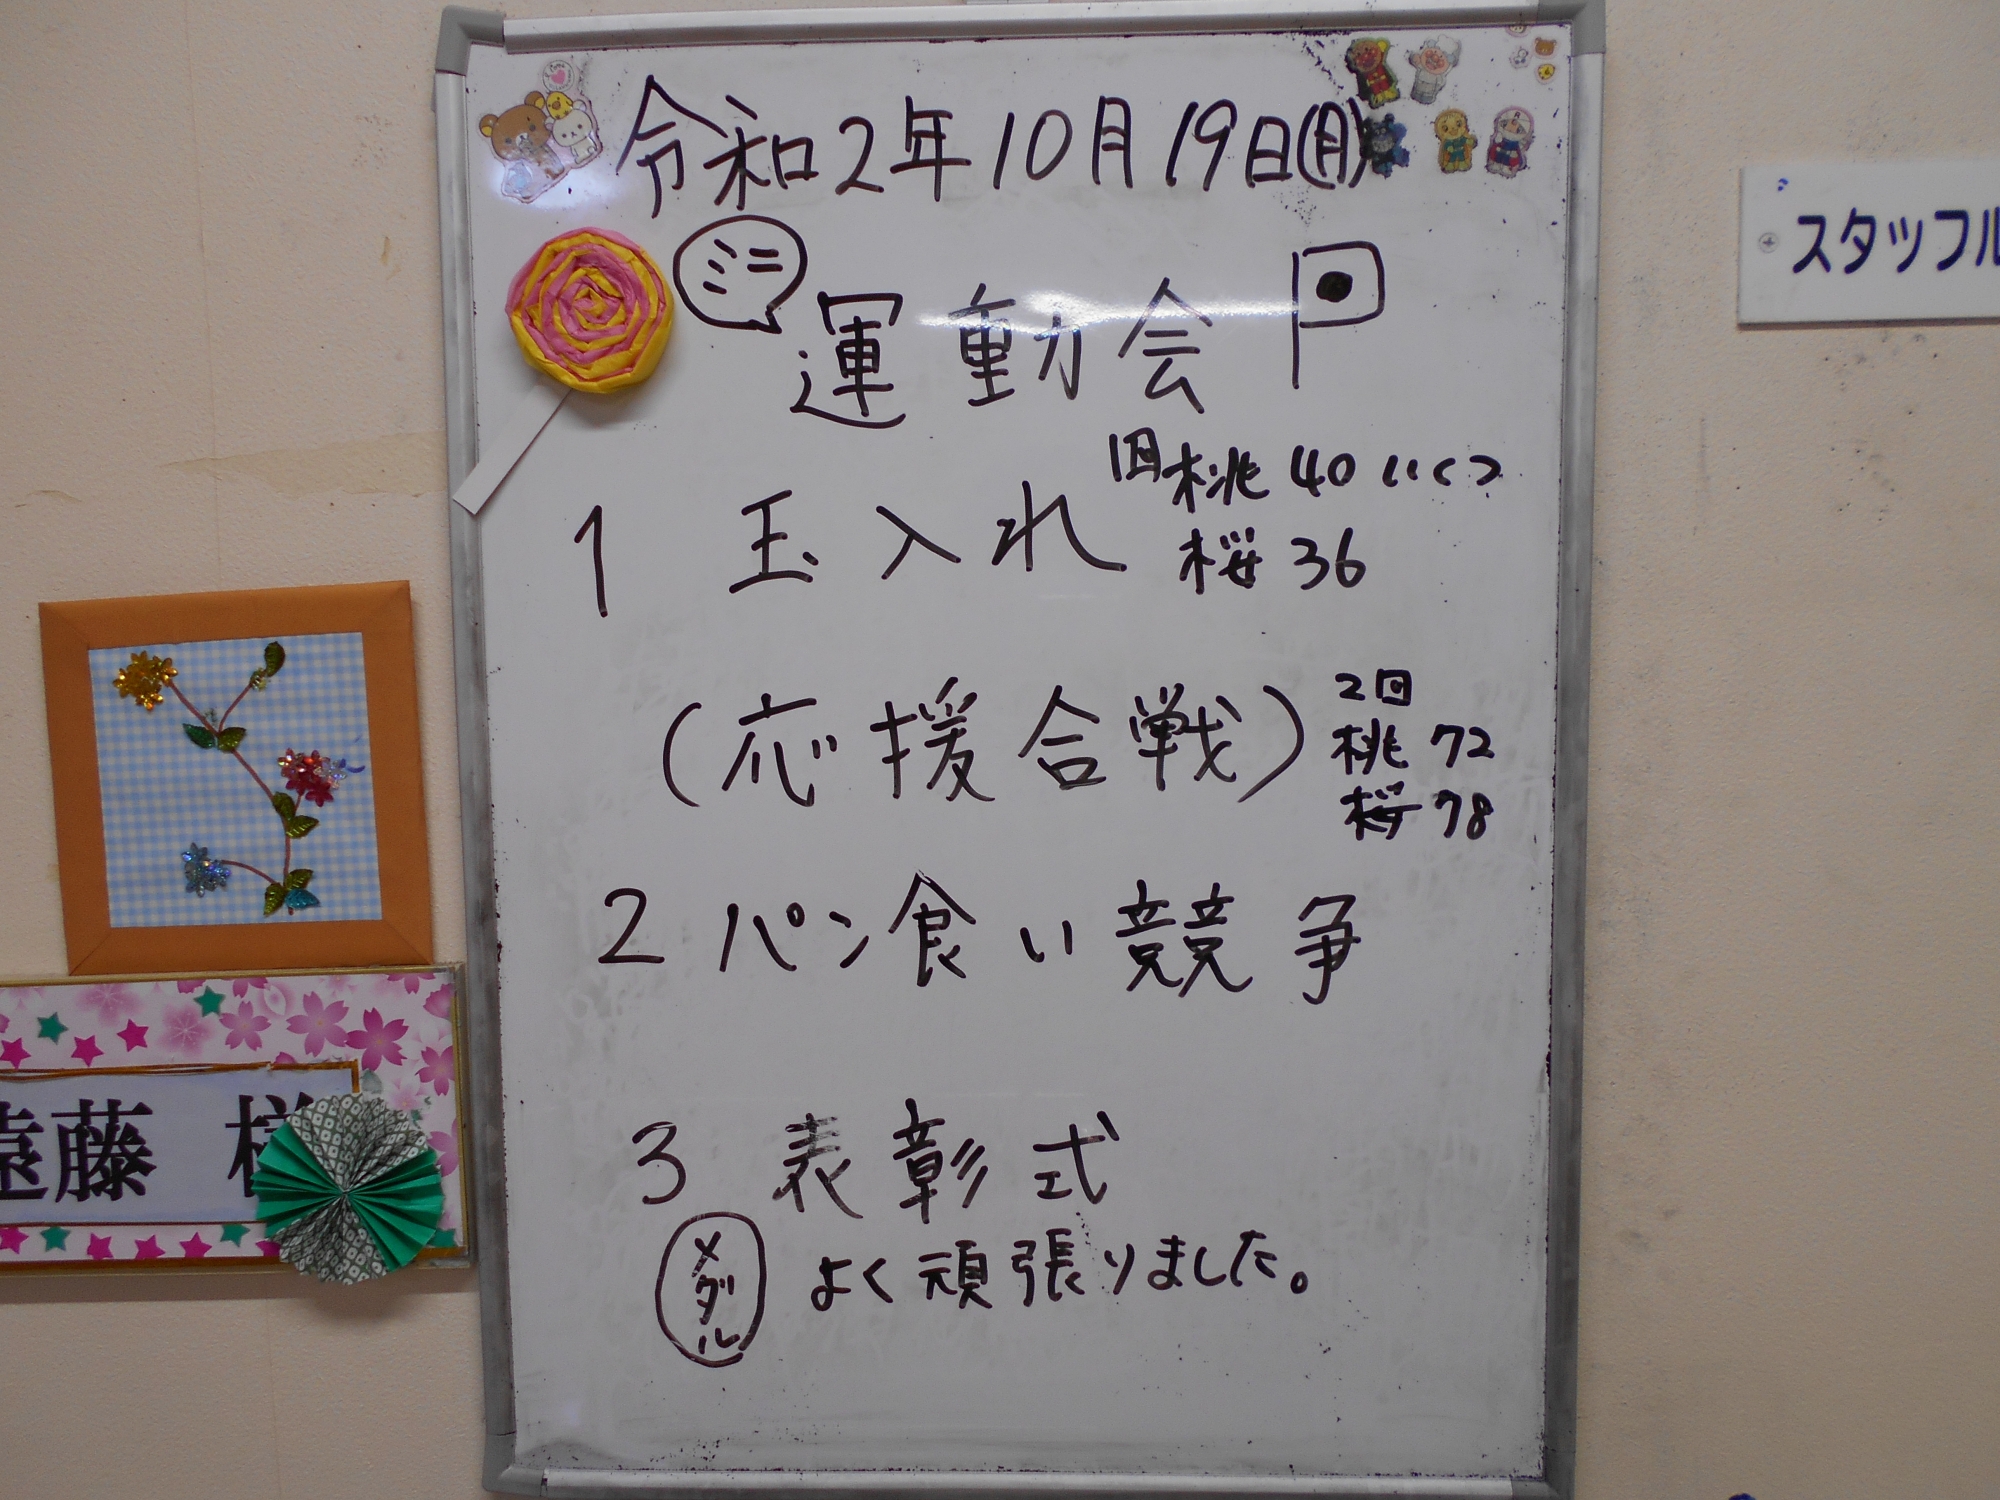 令和2年10月19日(月)
ミニ
運動会
1 玉入れ
1回桃 40
桜 36
(応援合戦)
2回
桃 72
桜 78
2 パン食い競争
3 表彰式
メダル
よく頑張りました。
スタッフル
遠藤 様